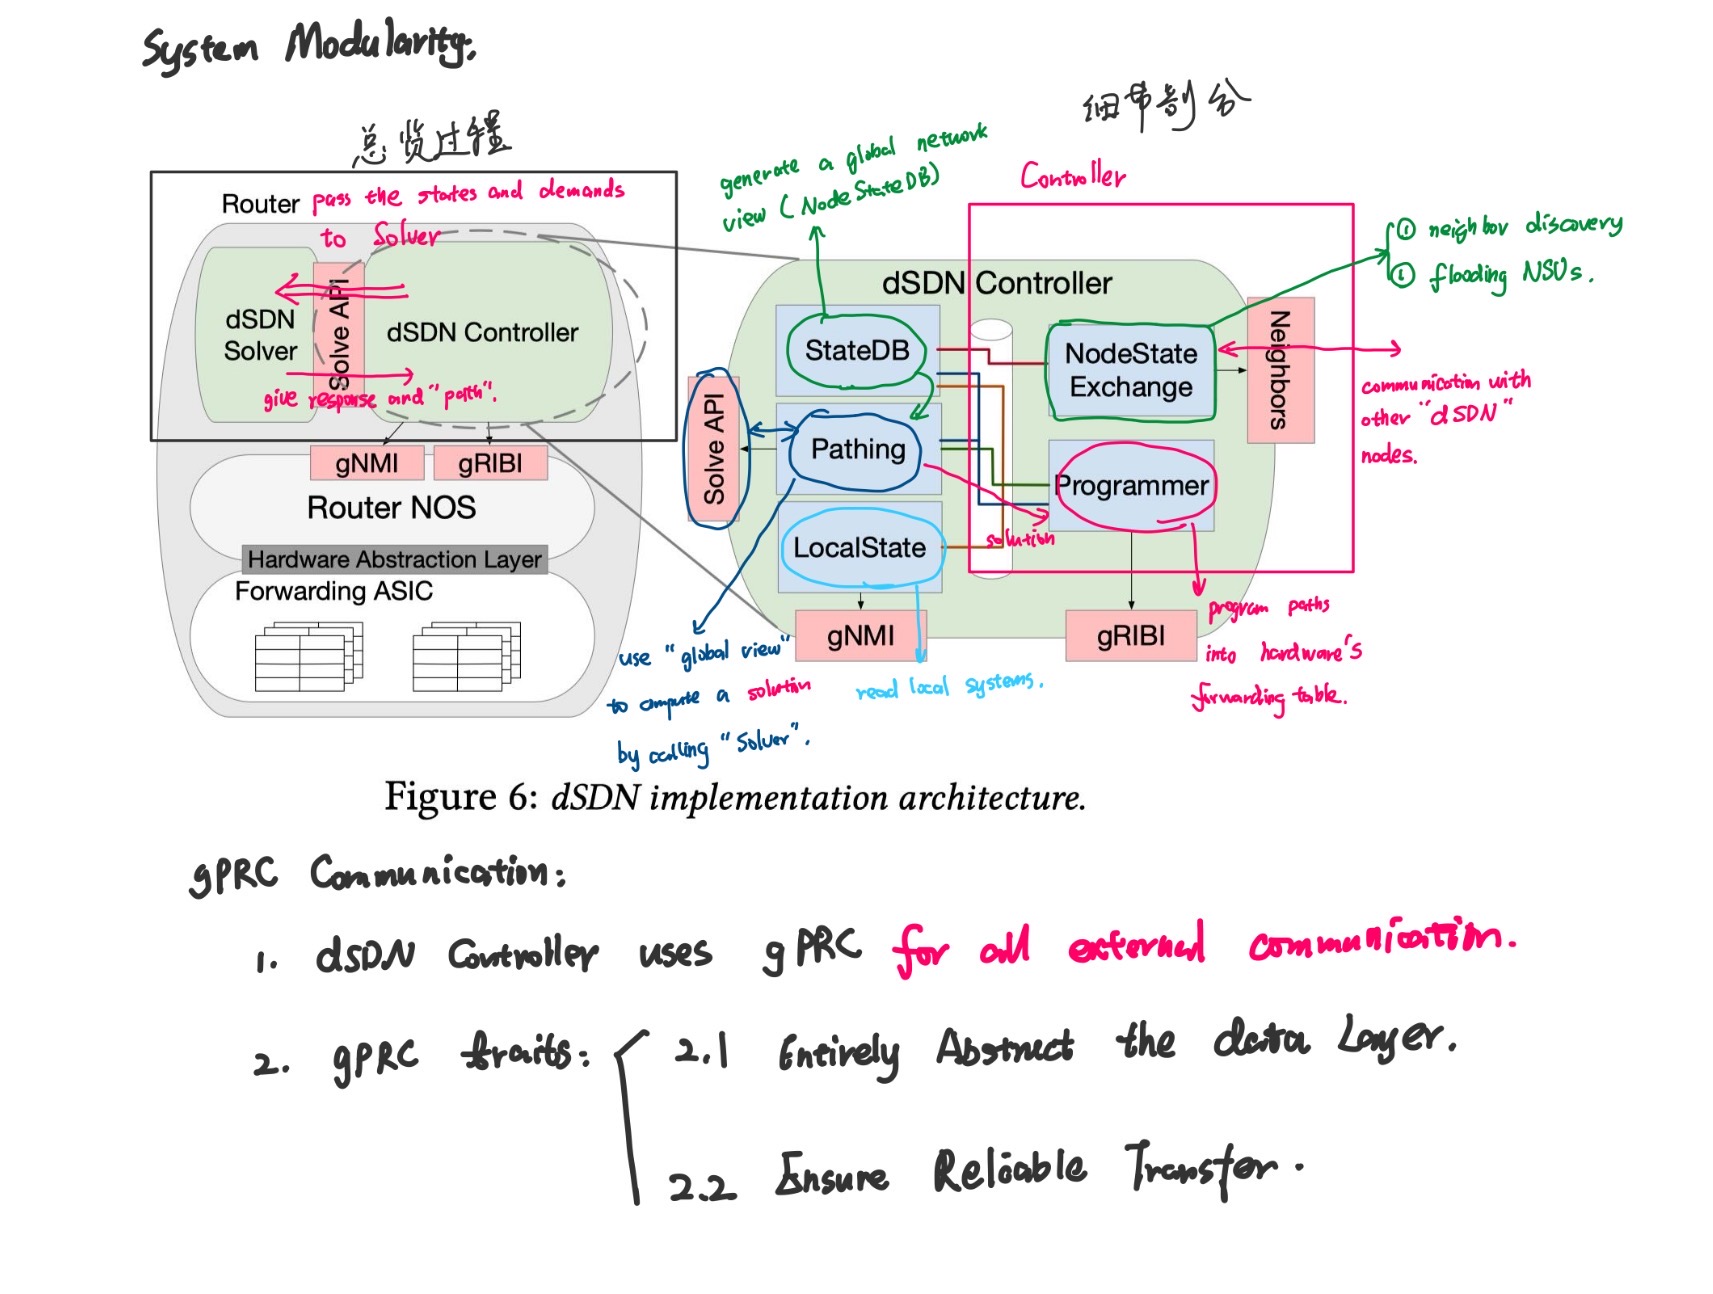 System Modularity:
总览过程
细节剖分
generate a global network
view (NodeStateDB)
Controller
Router
pass the states and demands
to Solver
① neighbor discovery
① flooding NSUs.
dSDN
Solver
Solve API
dSDN Controller
give response and "path".
gNMI
gRIBI
Router NOS
Hardware Abstraction Layer
Forwarding ASIC
dSDN Controller
StateDB
NodeState
Exchange
Neighbors
communication with
other "dSDN"
nodes.
Solve API
Pathing
Programmer
solution
LocalState
gNMI
gRIBI
program paths
into hardware's
forwarding table.
use "global view"
to compute a solution
by calling "Solver".
read local systems.
Figure 6: dSDN implementation architecture.
gPRC Communication:
1. dSDN Controller uses gPRC for all external communication.
2. gPRC traits:
2.1 Entirely Abstract the data Layer.
2.2 Ensure Reliable Transfer.